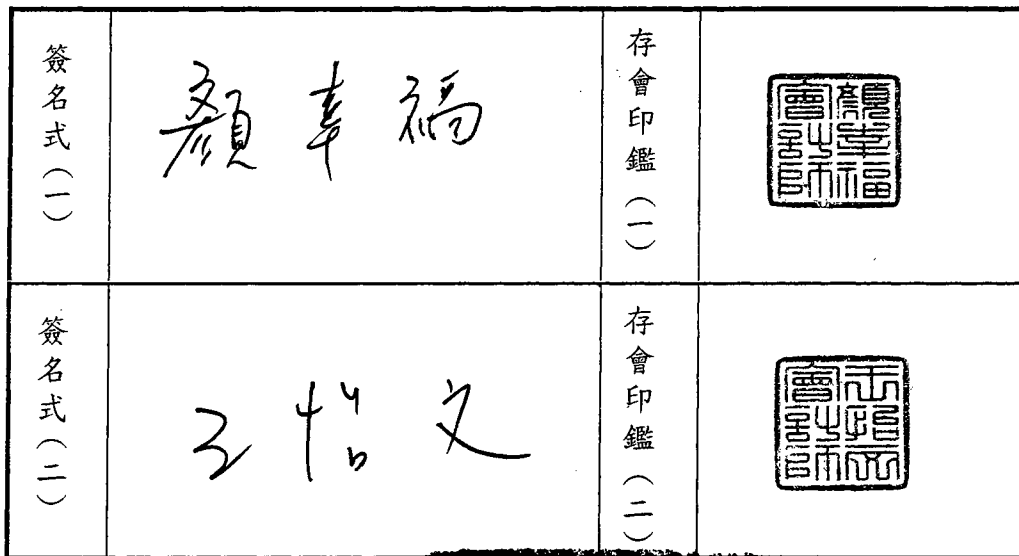 簽名式（一）
顏幸福
存會印鑑（一）
顏幸福
會計師
簽名式（二）
王怡文
存會印鑑（二）
王怡文
會計師